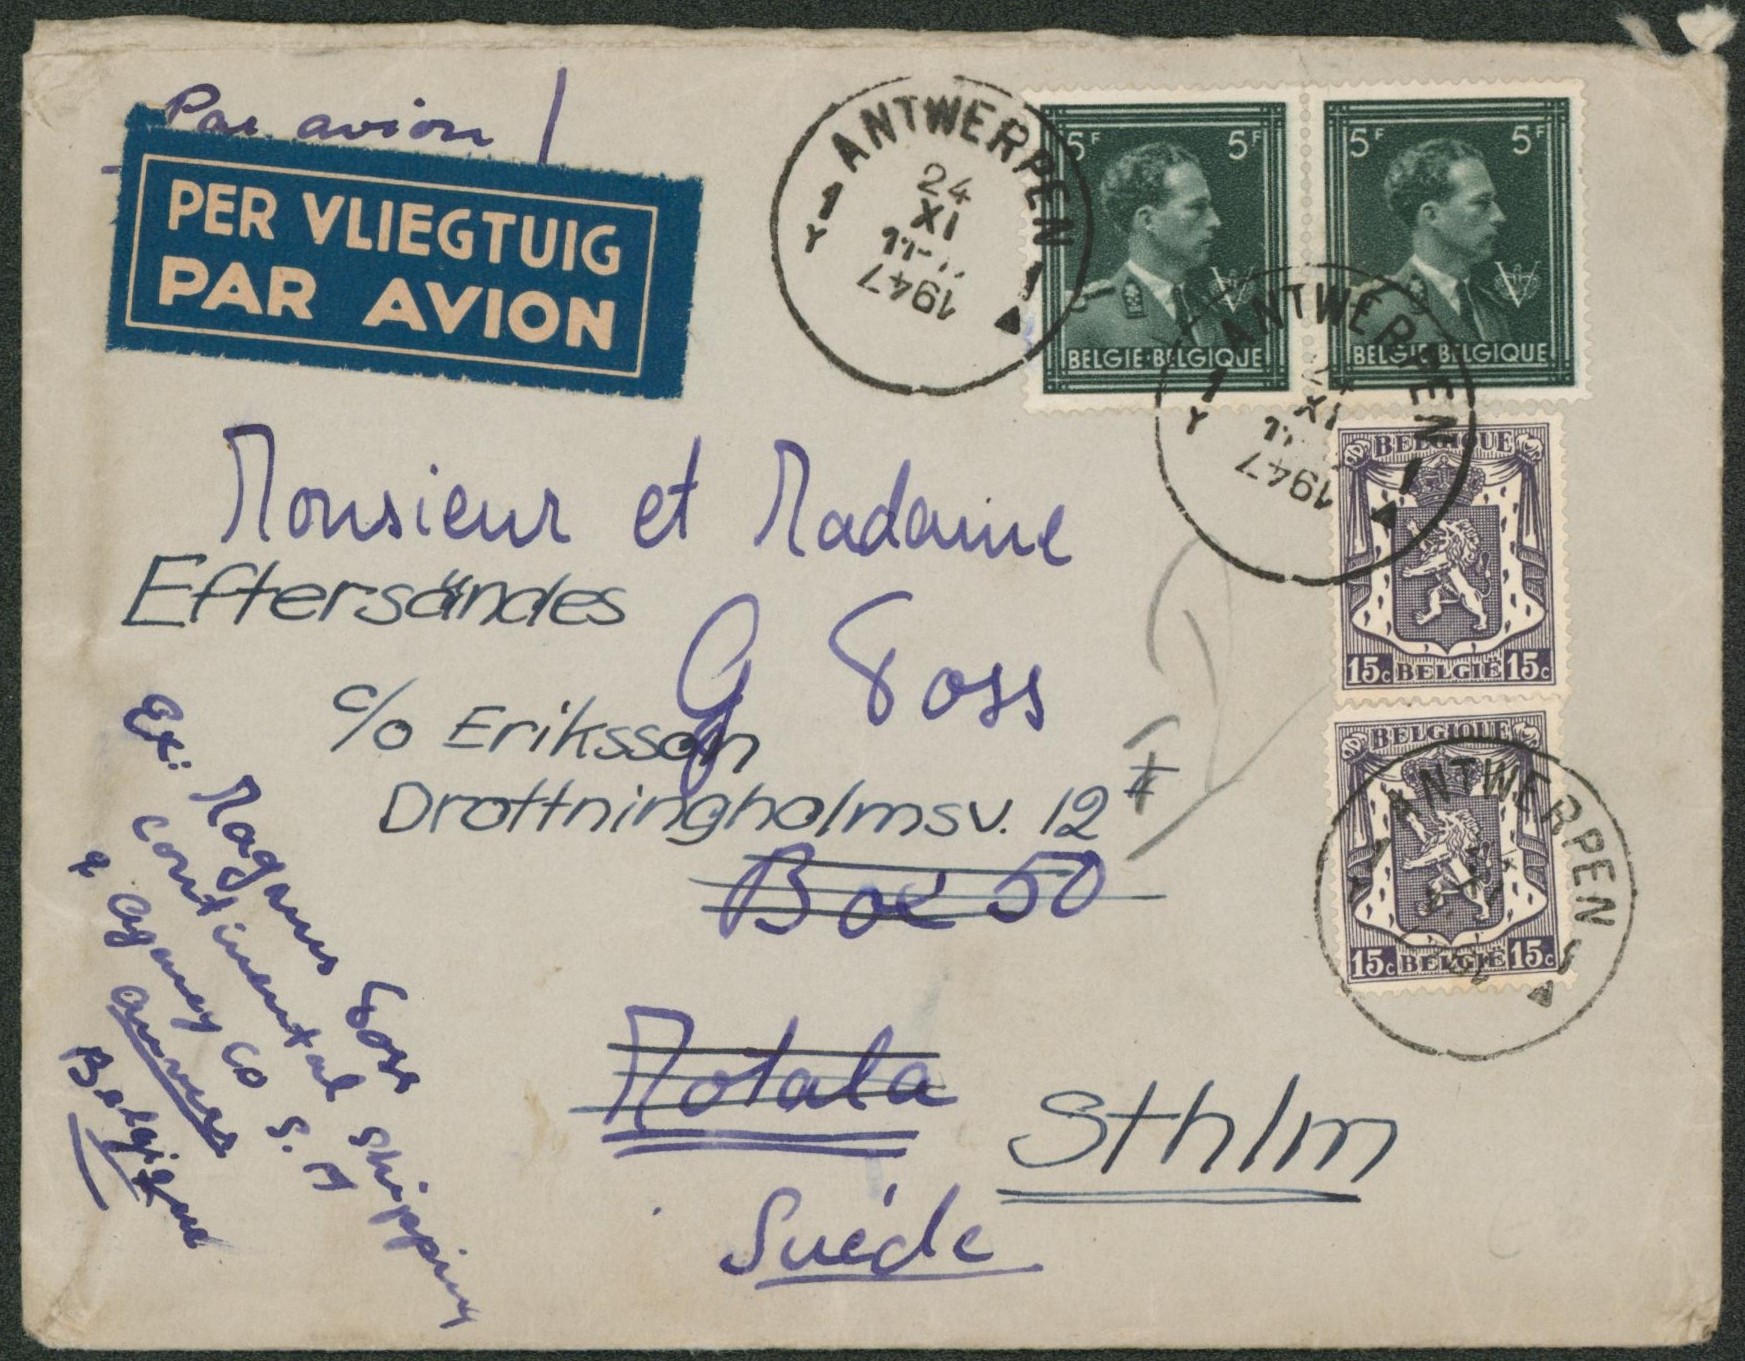 Par avion
PER VLIEGTUIG
PAR AVION
ANTWERPEN
1 1
Y
24
XI
1947
5F 5F
BELGIE·BELGIQUE
5F 5F
BELGIE·BELGIQUE
ANTWERPEN
1 1
Y
XI
1947
BELGIQUE
15c BELGIË 15c
BELGIQUE
15c BELGIË 15c
ANTWERPEN
Monsieur et Madame
Eftersändes
G Foss
c/o Eriksson
Drottningholmsv. 12
Box 50
Motala
Sthlm
Suède
Ex: Magnus Foss
Continental Shipping
& Agency Co S.A
Anvers
Belgique